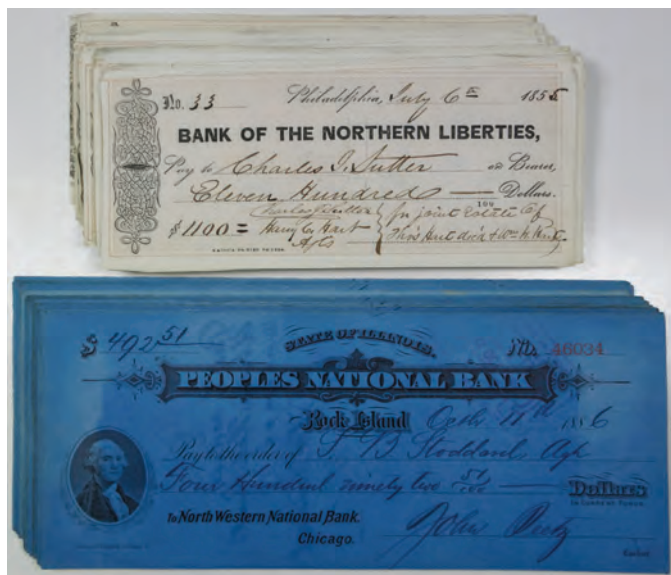 No. 33 Philadelphia, July 6th 1855
BANK OF THE NORTHERN LIBERTIES,
Pay to Charles J. Sutter or Bearer,
Eleven Hundred Dollars.
100
Charles J. Sutter for joint Estate of
$ 1100= Henry C. Hart Thos Hart dec'd & Wm H. Hart
Agts
$ 492 51
STATE OF ILLINOIS.
No. 46034
PEOPLES NATIONAL BANK
Rock Island Octbr 11th 1886
Pay to the order of T. B. Stoddard, Agt
Four Hundred ninety two 51/100 Dollars
To North Western National Bank.
Chicago.
John
Cashier